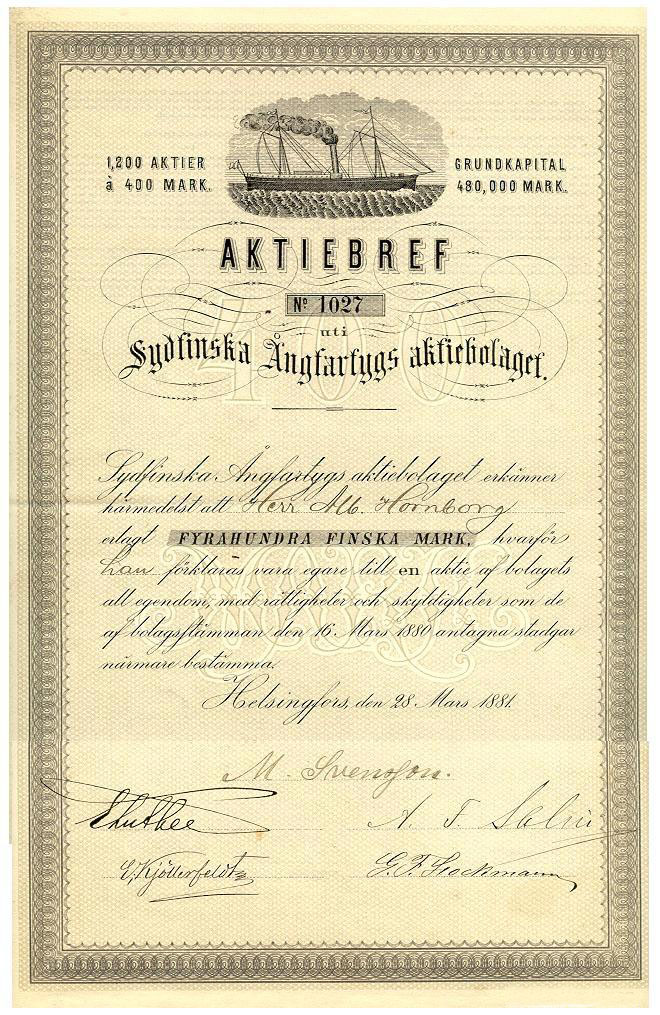 1,200 AKTIER
à 400 MARK.
GRUNDKAPITAL
480,000 MARK.
AKTIEBREF
No 1027
uti
400
Sydfinska Ångfartygs aktiebolaget.
Sydfinska Ångfartygs aktiebolaget erkänner
härmedelst att Herr Alb. Hornborg
erlagt FYRAHUNDRA FINSKA MARK, hvarför
han förklaras vara egare till en aktie af bolagets
all egendom, med rättigheter och skyldigheter som de
af bolagsstämman den 16 Mars 1880 antagna stadgar
närmare bestämma.
Helsingfors, den 28 Mars 1881.
M. Svensson.
A. F. Salin
E. Kjöllerfeldt
G. F. Stockmann